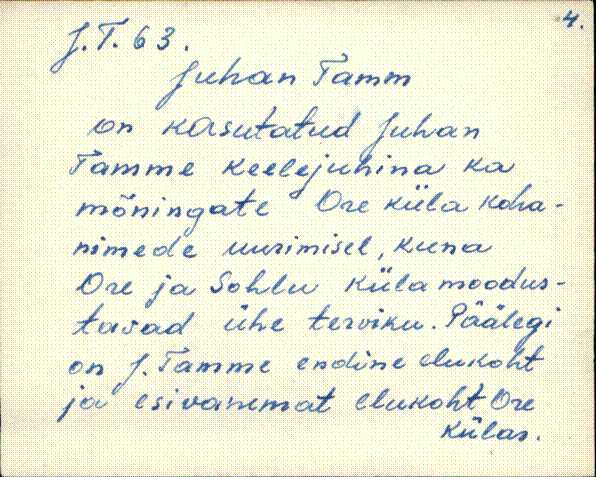 4.
J.T. 63.
Juhan Tamm
on kasutatud Juhan
Tamme keelejuhina ka
mõningate Ore küla koha-
nimede uurimisel, kuna
Ore ja Sohlu küla moodus-
tavad ühe terviku. Päälegi
on J. Tamme endine elukoht
ja esivanemat elukoht Ore
külas.